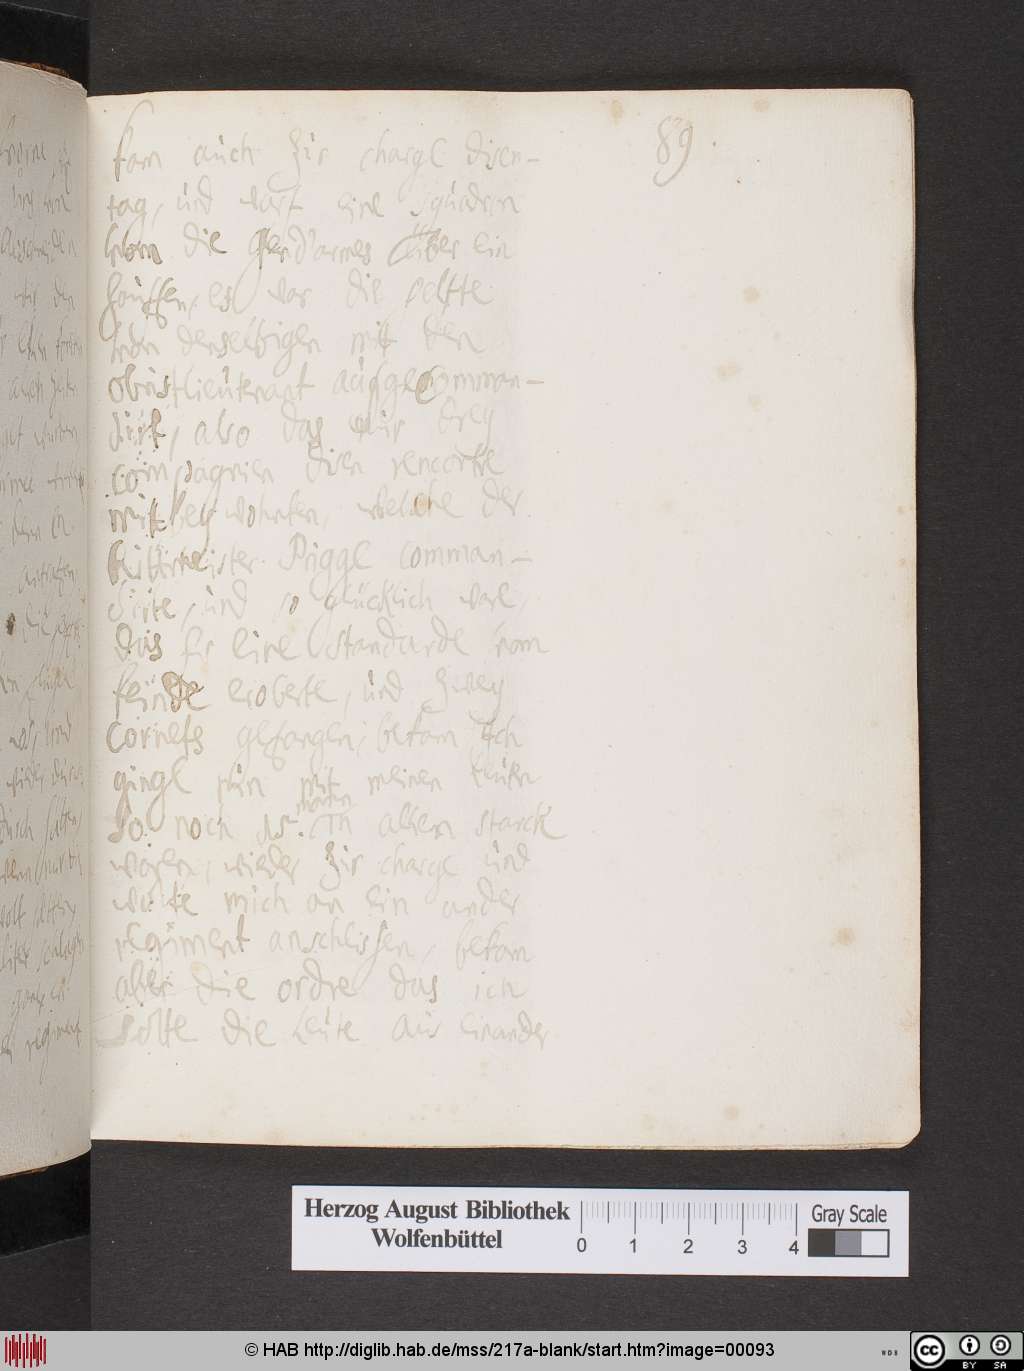 89.
kam auch zur charge disen-
tag, und warf eine squadron
von die Gend'armes über ein
hauffen, es war die helfte
von derselbigen mit den
obristlieutenant aufgecomman-
dirt, also das nur drey
compagnien disen rencontre
mit bey wohnten, welche der
Rittmeister Piggl comman-
dirte, und so glücklich ware,
das Er eine standarde vom
feinde eroberte, und zwey
Cornets gefangen bekam, Ich
ginge nun mit meinen leuten
so noch 15. man in allem starck
waren, wieder zur charge und
wolte mich an ein ander
regiment anschlissen, bekam
aber die ordre das ich
solte die leute aus einander
Herzog August Bibliothek
Wolfenbüttel
0 1 2 3 4
Gray Scale
© HAB http://diglib.hab.de/mss/217a-blank/start.htm?image=00093
cc BY SA